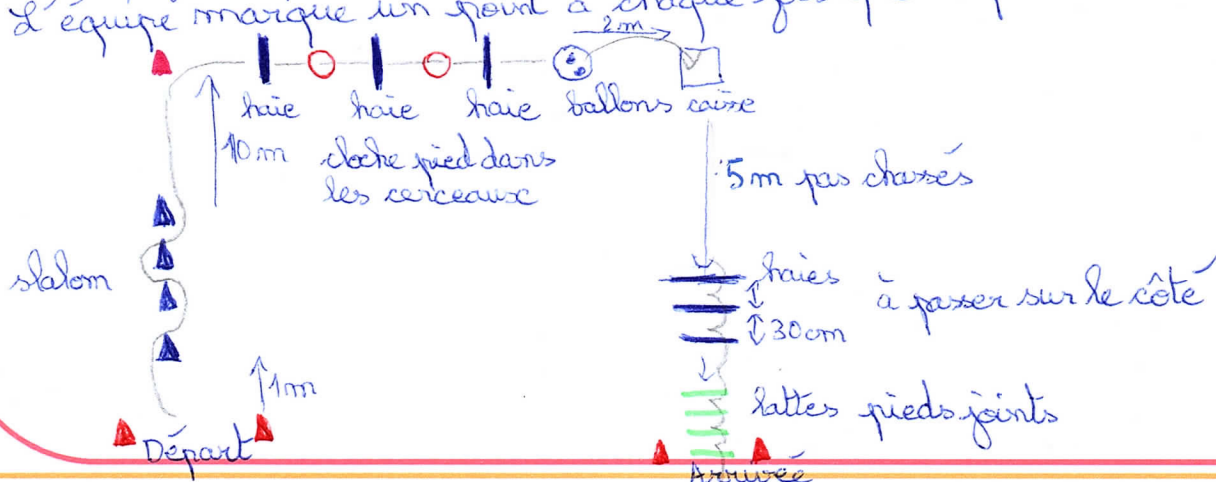 L'équipe marque un point à chaque
2m
haie haie haie ballons caisse
10m cloche pied dans
les cerceaux
5m pas chassés
slalom
haies à passer sur le côté
30cm
1m
lattes pieds joints
Départ
Arrivée